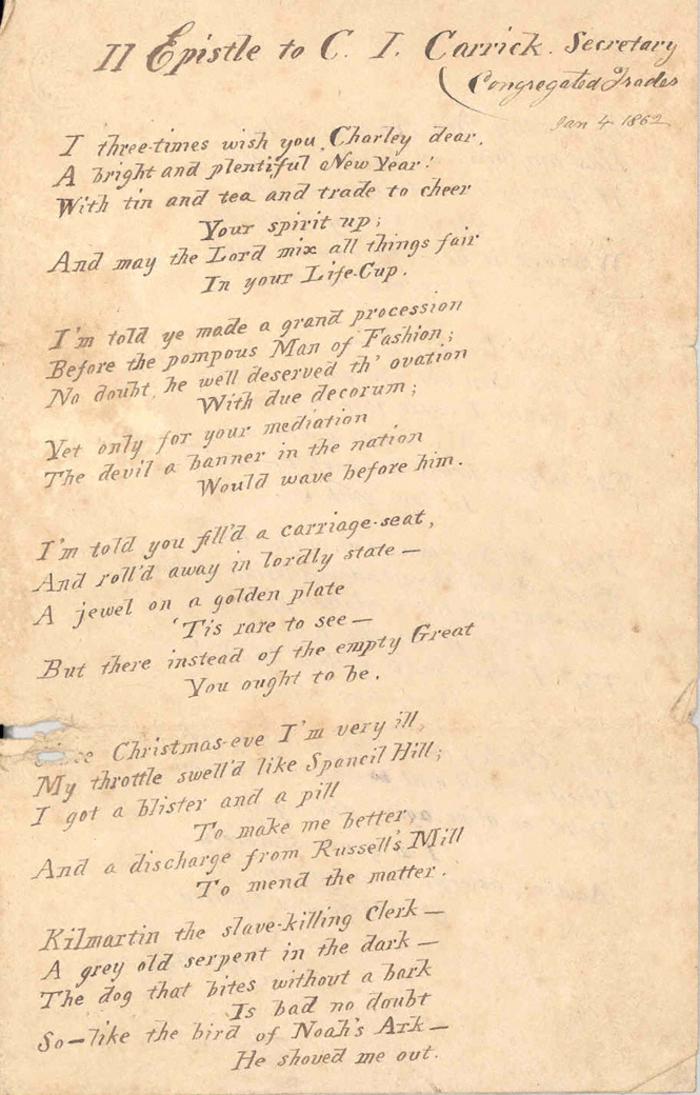 II Epistle to C. I. Carrick. Secretary
Congregated Trades
Jan 4 1862
I three-times wish you, Charley dear,
A bright and plentiful New Year!
With tin and tea and trade to cheer
Your spirit up;
And may the Lord mix all things fair
In your Life-Cup.
I'm told ye made a grand procession
Before the pompous Man of Fashion;
No doubt, he well deserved th' ovation
With due decorum;
Yet only for your mediation
The devil a banner in the nation
Would wave before him.
I'm told you fill'd a carriage-seat,
And roll'd away in lordly state —
A jewel on a golden plate
'Tis rare to see —
But there instead of the empty Great
You ought to be.
Christmas-eve I'm very ill,
My throttle swell'd like Spancil Hill;
I got a blister and a pill
To make me better,
And a discharge from Russell's Mill
To mend the matter.
Kilmartin the slave-killing Clerk —
A grey old serpent in the dark —
The dog that bites without a bark
Is bad no doubt
So — like the bird of Noah's Ark —
He shoved me out.